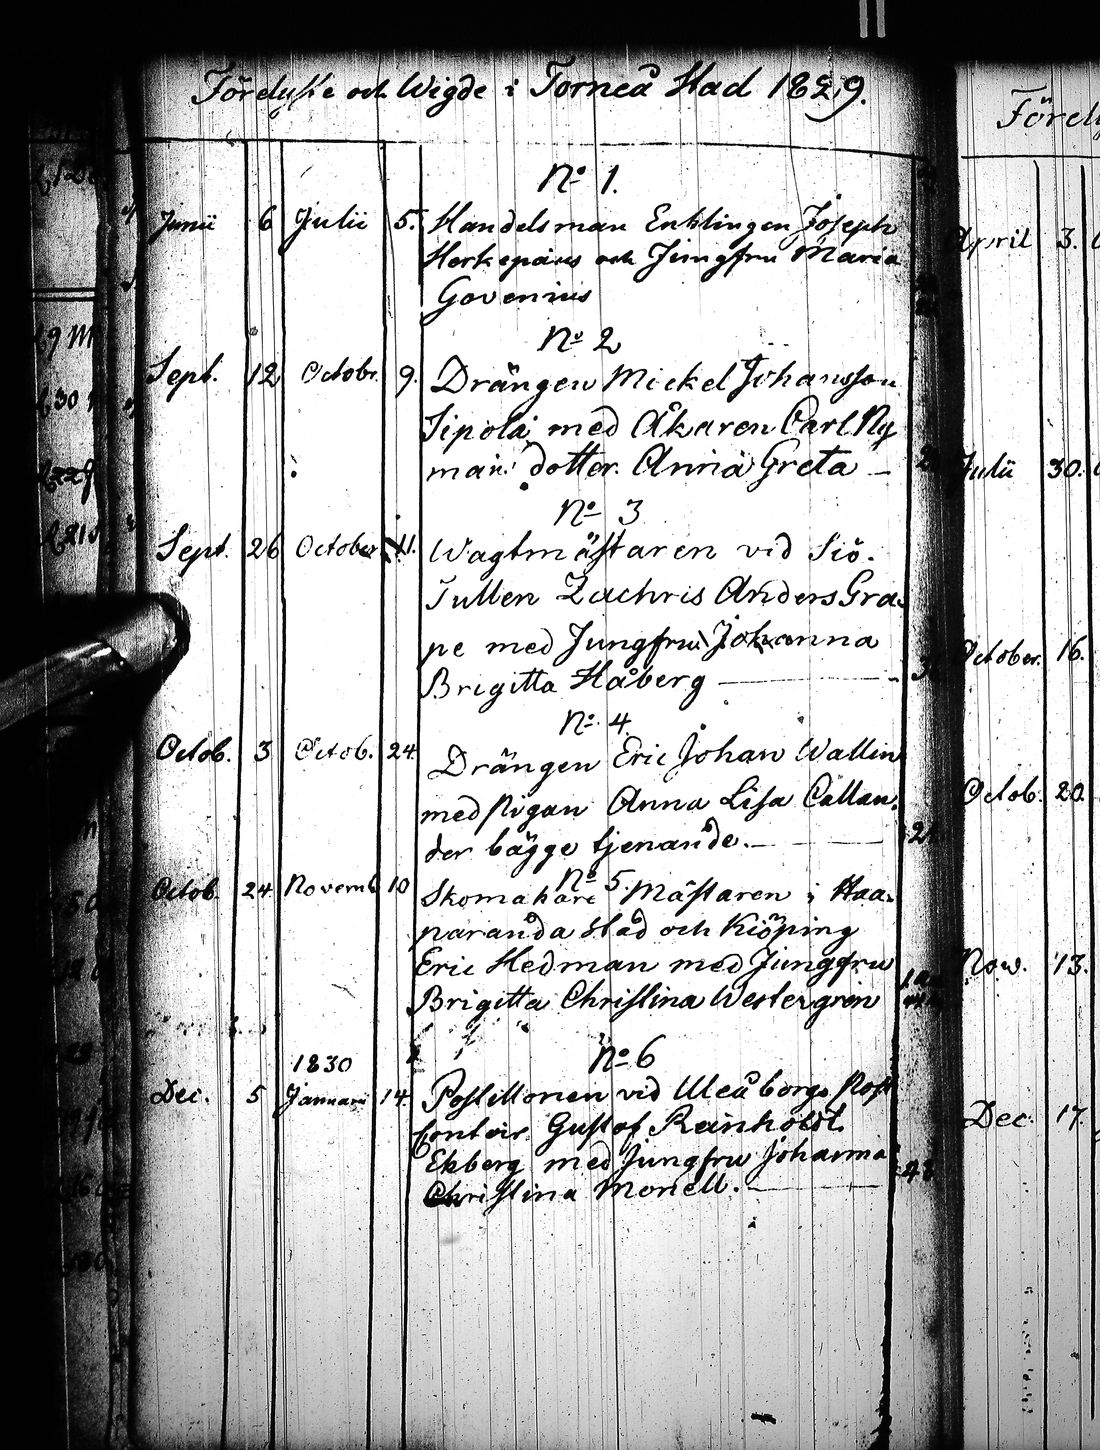 Förelyste och Wigde i Torneå Stad 1829.
No 1.
Junii 6 Julii 5. Handelsman Enklingen Joseph
Herkepaus och Jungfru Maria
Govenius
No 2
Sept. 12 Octobr. 9. Drängen Mickel Johansson
Sipola med Åkaren Carl Ny
man: dotter Anna Greta —
No 3
Sept. 26 October 11. Wagtmästaren vid Siö.
Tullen Zachris Anders Gra-
pe med Jungfru Johanna
Brigitta Håberg —
No 4.
Octob. 3 Octob. 24. Drängen Eric Johan Wallin
med Pigan Anna Lisa Callan-
der bägge tjenande. —
No 5.
Octob. 24 Novemb. 10 Skomakare Mästaren i Haa-
paranda Stad och Kiöping
Eric Hedman med Jungfru
Brigitta Christina Westergren
No 6
1830
Dec. 5 Januari 14. Postillonen vid Uleåborgs Post
Contoir Gustaf Reinholdt
Ekberg med Jungfru Johanna
Christina Monell. —
Förely
April 3.
Julii 30.
October. 16.
Octob. 20
Nov. 13.
Dec. 17.